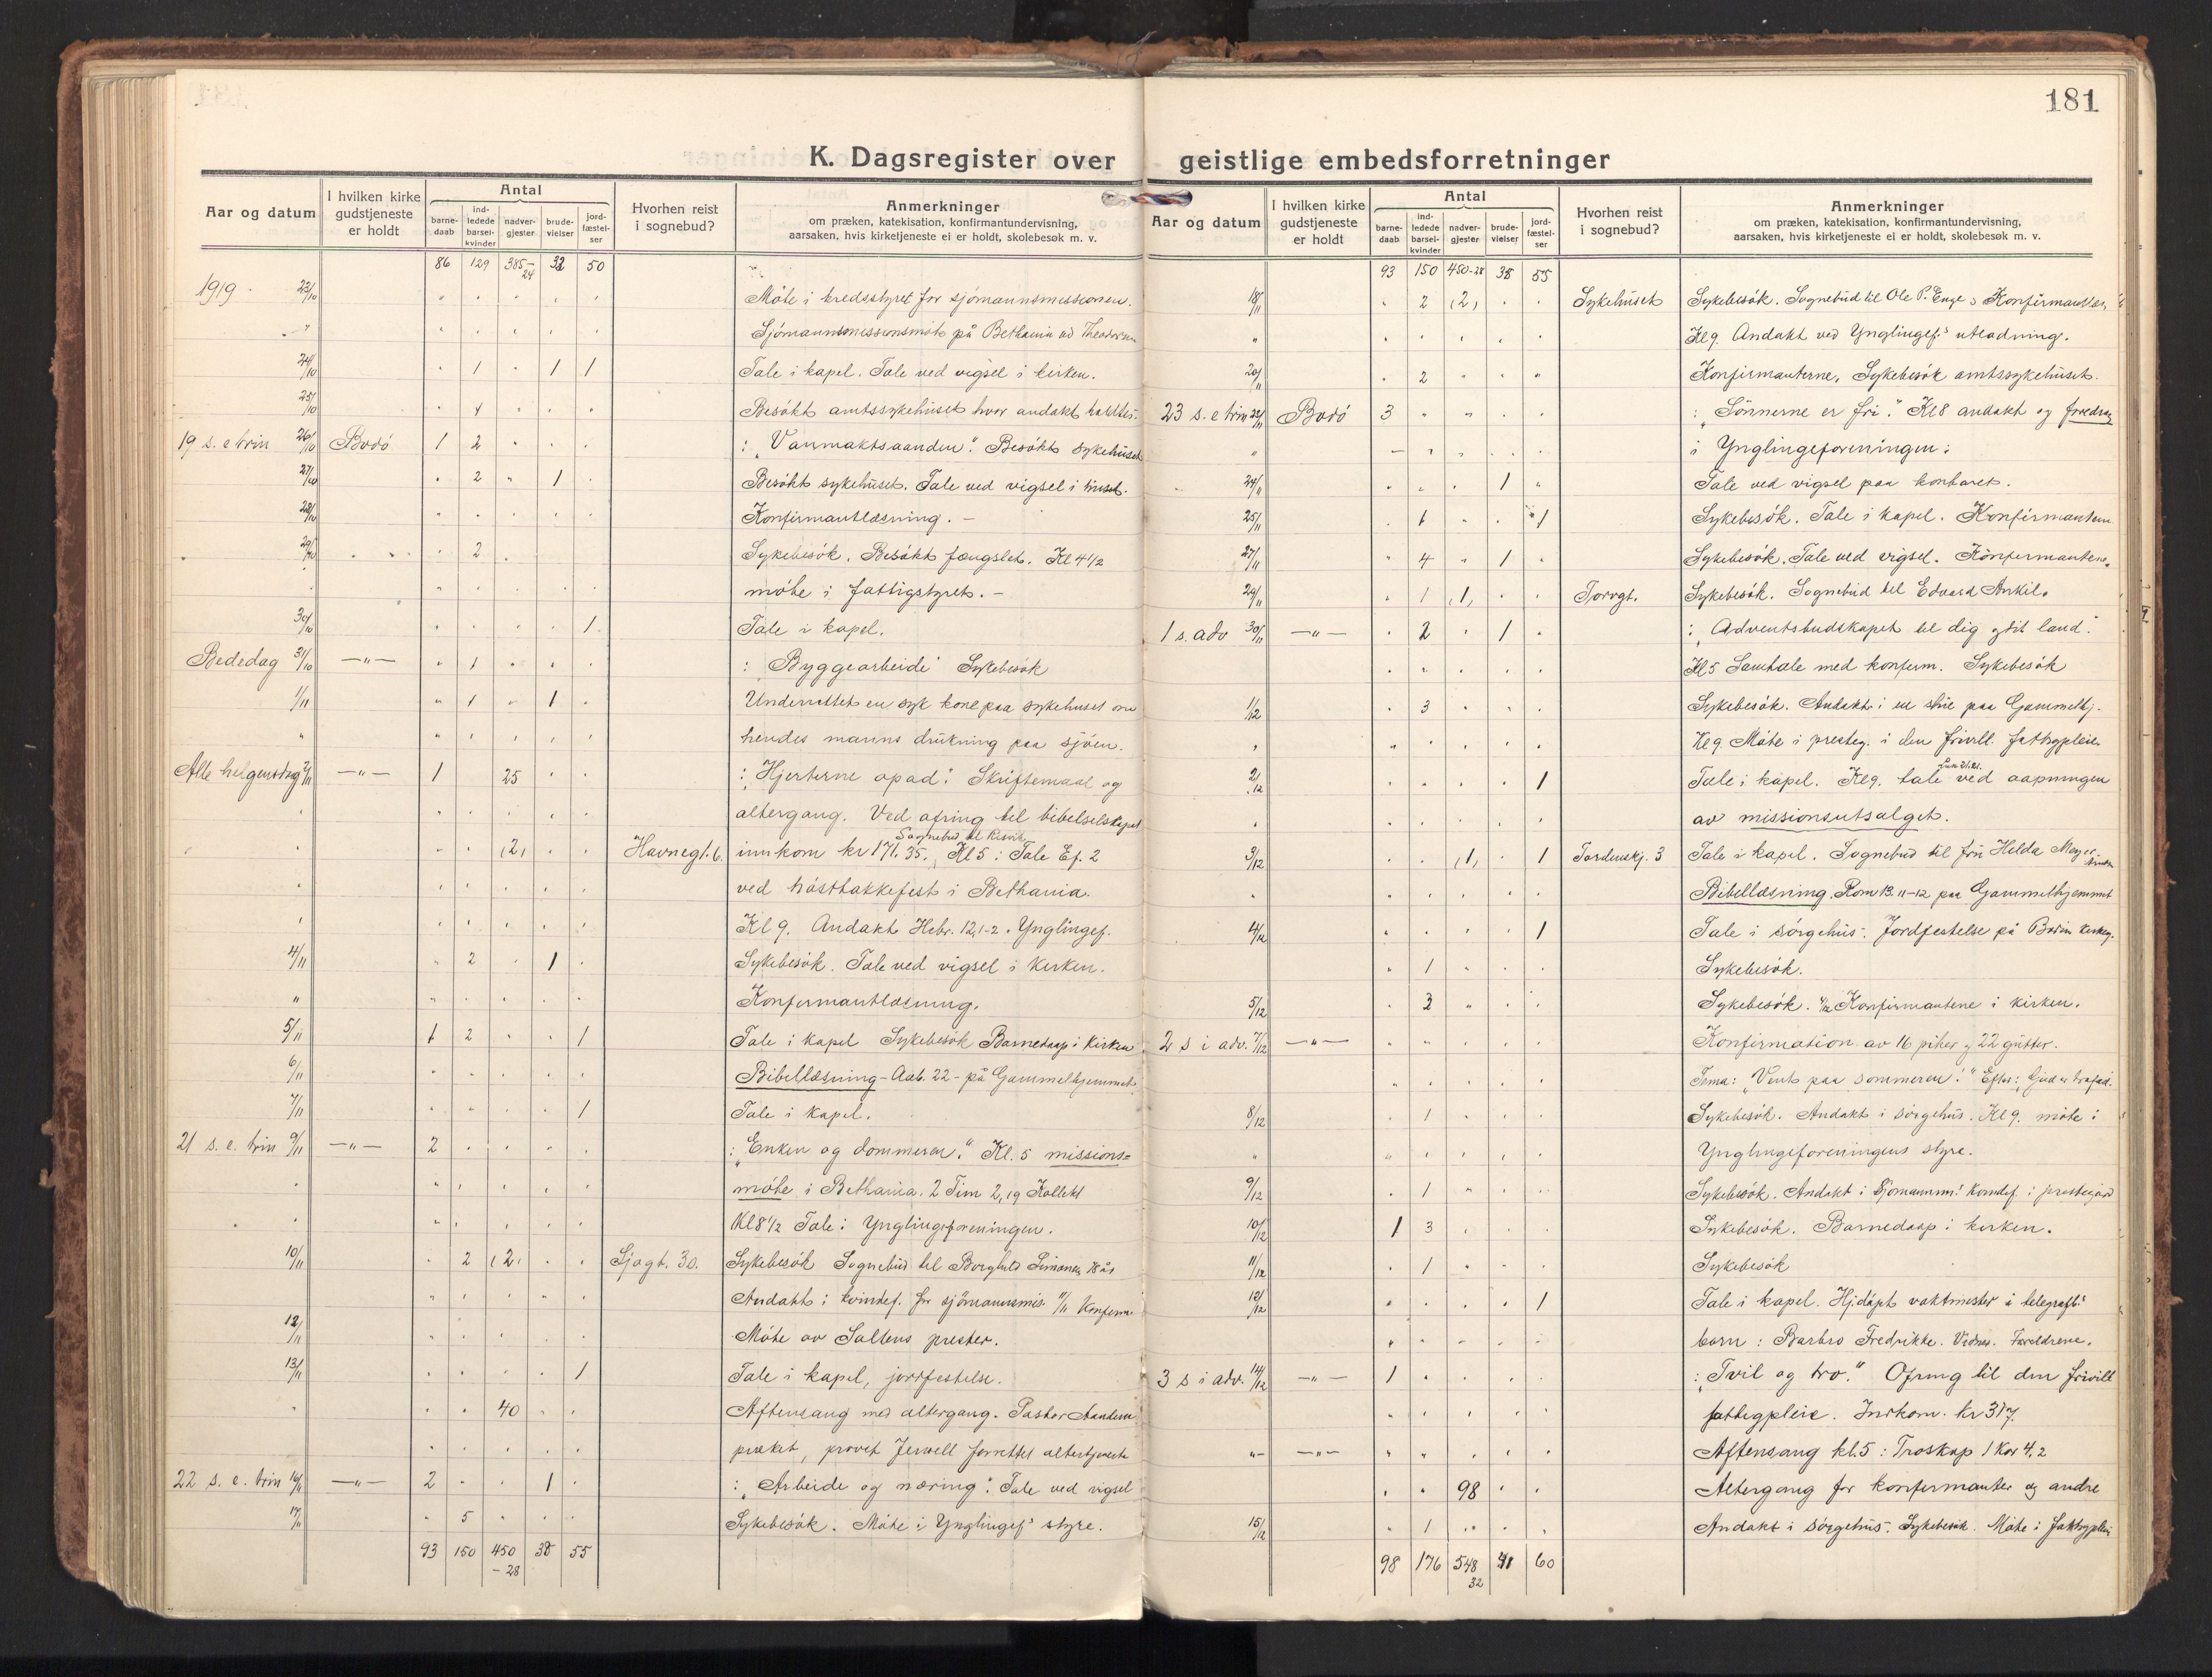 181
K. Dagsregister over geistlige embedsforretninger
Aar og datum
I hvilken kirke gudstjeneste er holdt
Antal
barne-daab
ind-ledede barsel-kvinder
nadver-gjester
brude-vielser
jord-fæstel-ser
Hvorhen reist i sognebud?
Anmerkninger
om præken, katekisation, konfirmantundervisning,
aarsaken, hvis kirketjeneste ei er holdt, skolebesøk m. v.
86 129 385-24 32 50
1919 23/10 Møte i kredsstyret for sjømannsmissionen.
" Sjømannsmissionsmøte på Bethania ved
24/10 1 1 1 Tale i kapel. Tale ved vigsel i kirken.
25/10 4 Besøkt amtssykehuset hvor andakt holdtes.
19 s. e trin 26/10 Bodø 1 2 : "Vanmaktsaanden". Besøkt sykehuset
27/10 2 1 Besøkt sykehuset. Tale ved vigsel i huset.
28/10 Konfirmantlæsning. -
29/10 2 Sykebesøk. Besøkt fængslet. Kl 4 1/2
møte i fattigstyret. -
30/10 1 Tale i kapel.
Bededag 31/10 -"- 1 : "Byggearbeide" Sykebesøk
1/11 1 1 Underrettet en syk kone paa sykehuset om
" hendes manns drukning paa sjøen.
Alle helgensdag 2/11 -"- 1 25 : "Hjerterne opad". Skriftemaal og
altergang. Ved ofring til bibelselskapet
Sognebud til
(2) Havnegt. 6. innkom kr 171.35. Kl 5 : Tale Ef. 2
ved høsttakkefest i Bethania.
Kl 9. Andakt Hebr. 12,1-2. Ynglingef.
4/11 2 1 Sykebesøk. Tale ved vigsel i kirken.
" Konfirmantlæsning.
5/11 1 2 1 Tale i kapel Sykebesøk Barnedaap i kirken
6/11 Bibellæsning - Aab. 22 - på Gammelhjemmet.
7/11 1 Tale i kapel.
21 s. e. trin 9/11 -"- 2 : "Enken og dommeren". Kl. 5 missions=
møte i Bethania. 2 Tim 2,19 Kollekt
Kl 8 1/2 Tale i Ynglingeforeningen.
10/11 2 (2) Sjøgt. 30. Sykebesøk Sognebud til Borghild Simonsen 18 år
Andakt i kvindef. for sjømannsmis. 11/11 Konfirm.
12/11 Møte av Saltens prester.
13/11 1 Tale i kapel, jordfestelse.
" 40 Aftensang med altergang. Pastor
præket, provst Jervell forrettet altertjeneste
22 s. e. trin 16/11 -"- 2 1 : "Arbeide og næring". Tale ved vigsel
17/11 5 Sykebesøk. Møte i Ynglingef's styre.
93 150 450-28 38 55
Aar og datum
I hvilken kirke gudstjeneste er holdt
Antal
barne-daab
ind-ledede barsel-kvinder
nadver-gjester
brude-vielser
jord-fæstel-ser
Hvorhen reist i sognebud?
Anmerkninger
om præken, katekisation, konfirmantundervisning,
aarsaken, hvis kirketjeneste ei er holdt, skolebesøk m. v.
93 150 450-28 38 55
18/11 2 (2) Sykehuset Sykebesøk. Sognebud til Ole P. Enge
" Kl 9 Andakt ved Ynglingef's utlodning.
20/11 2 Konfirmanterne, Sykebesøk amtssykehuset.
23 s. e trin 23/11 Bodø 3 : "Sønnerne er fri." Kl 8 andakt og foredrag
" i Ynglingeforeningen.
24/11 1 Tale ved vigsel paa kontoret.
25/11 1 1 Sykebesøk. Tale i kapel. Konfirmantene
27/11 4 1 Sykebesøk. Tale ved vigsel. Konfirmantene.
29/11 1 (1) Torvgt. Sykebesøk. Sognebud til Edvard
1 s. adv 30/11 -"- 2 1 : "Adventsbudskapet til dig og dit land".
Kl 5 Samtale med konfirm. Sykebesøk
1/12 3 Sykebesøk. Andakt i en stue paa Gammelhj.
Kl 9 Møte i presteg. i den frivill. fattigpleie.
2/12 1 Tale i kapel. Kl 9. tale ved aapningen
av missionsutsalget.
3/12 (1) 1 Tordenskj. 3 Tale i kapel. Sognebud til fru Helda Meyer
Bibellæsning. Rom 13. 11-12 paa Gammelhjemmet
4/12 1 Tale i sørgehus. Jordfestelse på Bodin kirkeg.
1 Sykebesøk.
5/12 3 Sykebesøk. Konfirmantene i kirken.
2 s i adv. 7/12 -"- Konfirmation av 16 piker og 22 gutter.
Tema: "Vent paa sommeren!"
8/12 1 Sykebesøk. Andakt i sørgehus. Kl 9. møte i
" Ynglingeforeningens styre.
9/12 1 Sykebesøk. Andakt i Sjømannm's kvindef. i prestegård
10/12 1 3 Sykebesøk. Barnedaap i kirken.
11/12 1 Sykebesøk
12/12 1 Tale i kapel. Hj.døpt vaktmester i telegrafv's
barn : Barbro Fredrikke. Vidner. Foreldrene.
3 s i adv. 14/12 -"- 1 : "Tvil og tro." Ofring til den frivill
fattigpleie. Innkom. kr 317.
"- -"- Aftensang kl. 5 : Troskap 1 Kor 4,2
98 Altergang for konfirmanter og andre
15/12 1 Andakt i sørgehus. Sykebesøk. Møte i fattigpleie
98 176 548 32 41 60